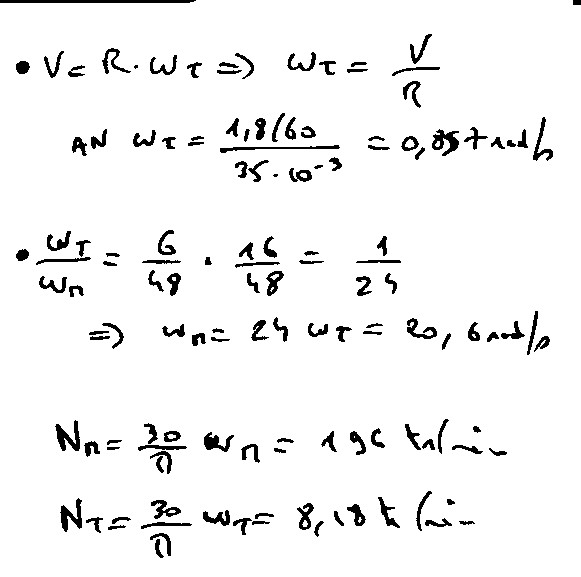 • V = R. ωT ⇒ ωT = V/R
AN ωT = 1,8/60 / 35.10⁻³ = 0,857 rad/s
• ωT/ωM = 6/48 . 16/48 = 1/24
⇒ ωM = 24 ωT = 20,6 rad/s
NM = 30/π ωM = 196 tr/min
NT = 30/π ωT = 8,18 tr/min